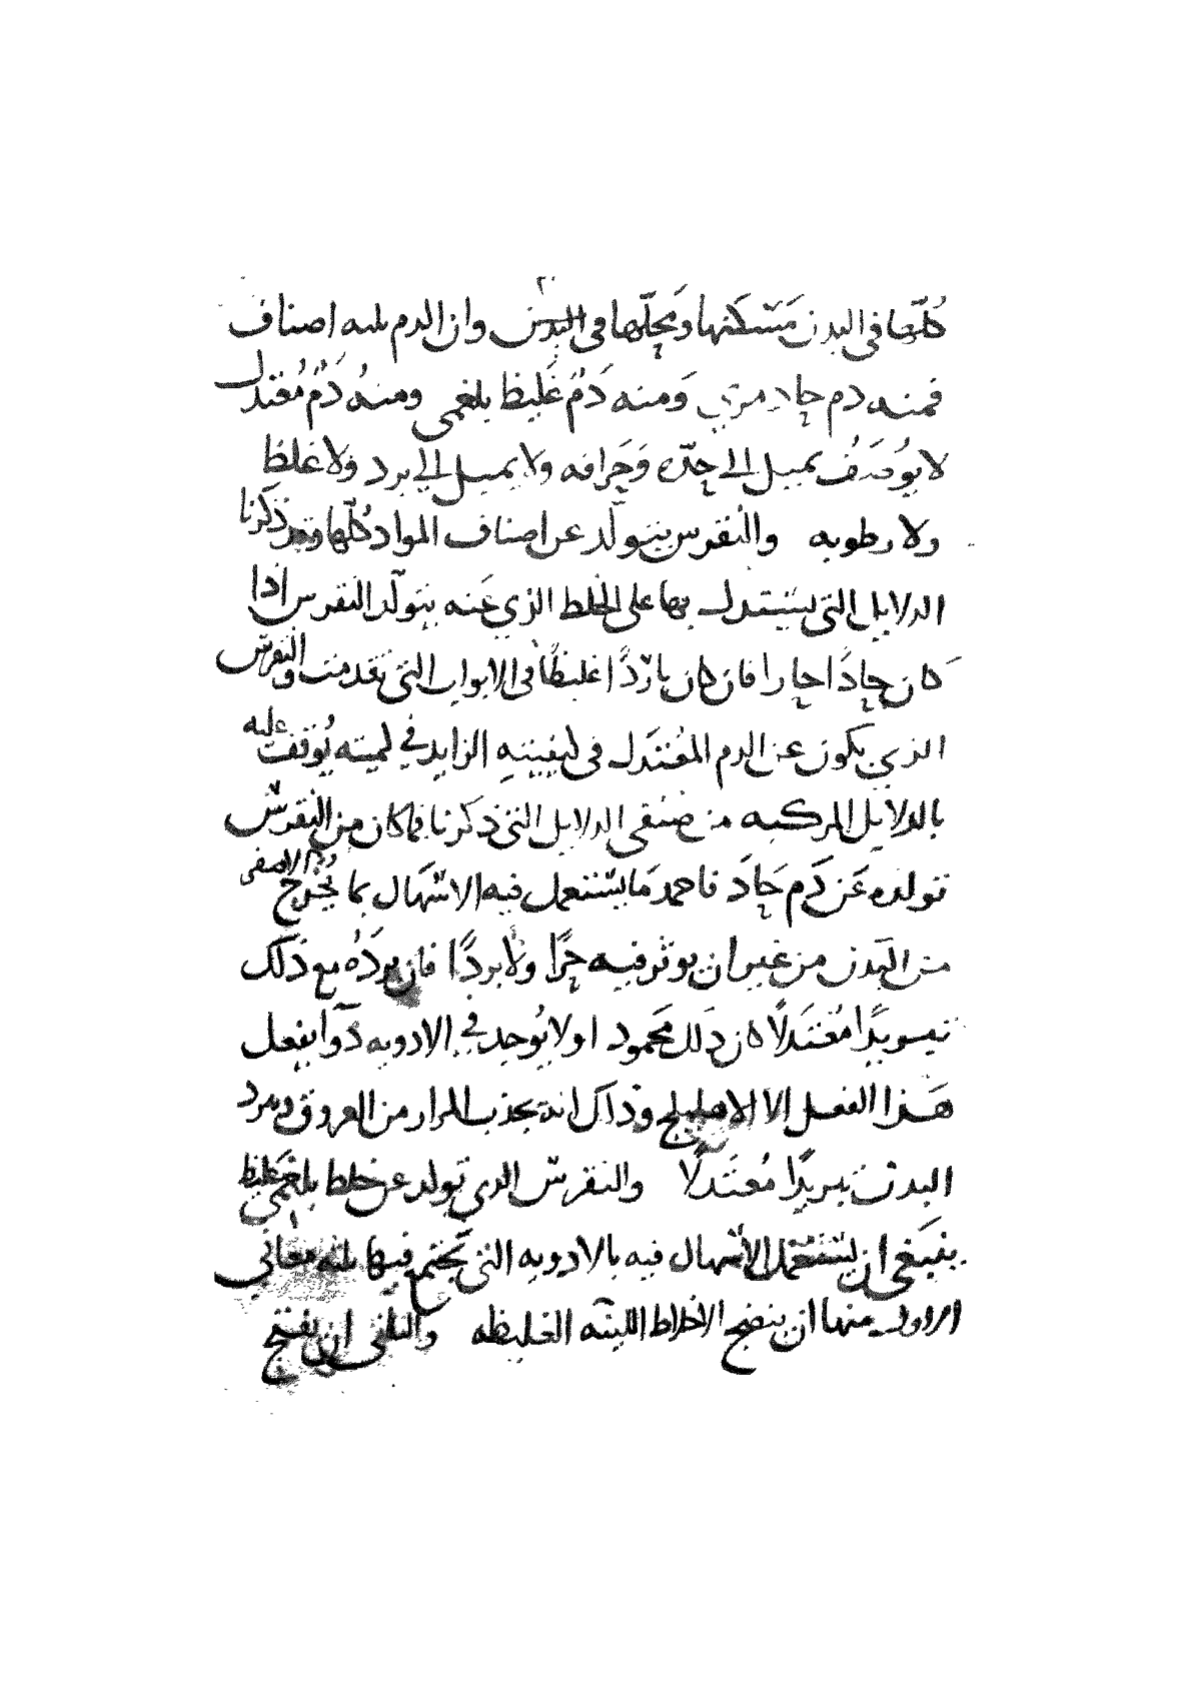 كلّها في البدن مَسْكنها ومحلّها في البدن وان الدم ثلثه اصناف
فمنه دم حاد مري وَمنه دَمُ غَليظ بلغمي ومنهُ دَمُ مُعتدل
لا يُوصَفُ يميل الى حدّه وَحَرافه ولا يميل الى برد ولا غلظ
ولا رطوبه والنقرس يتولّد عن اصناف المواد كلّها وقد ذكرنا
الدلايل التي يستدل بها على الخلط الذي عَنه يتولّد النقرس اذا
كان حادًا حارا فان كان باردًا غليظًا في الابواب التي تقدمت والنقرس
الذي يكون عن الدم المعُتدَل في كيفيته الزايد في كميته يُوقف عليه
بالدلايل المركبه من صنفي الدلايل التي ذكرنا فما كان من النقرس
تولده عَن دَم حَادَ فاحمد مَا يستعمل فيه الاسْهَال بما يُخرج الدم الاصفى
من البَدن من غير ان يوثر فيه حرًا ولا بردًا فان بردَهُ مع ذلك
تبريدًا مُعتَدلًا كان ذلك محمود اولا يُوجد في الادويه دَوآ يفعل
هَذا الفعل الا الاهليلج وذاك انه يجذب المرار من العروق ويبرد
البدن تبريدًا مُعتَدلًا والنقرس الذي تولد عن خلط بلغمَي غليظ
ينبَغي ان يستعمل الاسهال فيه بالادويه التي تجتمع فيها ثلثه معَاني
الاول منها ان ينضج الاخلاط اللينه الغليظه والثاني ان يفتح